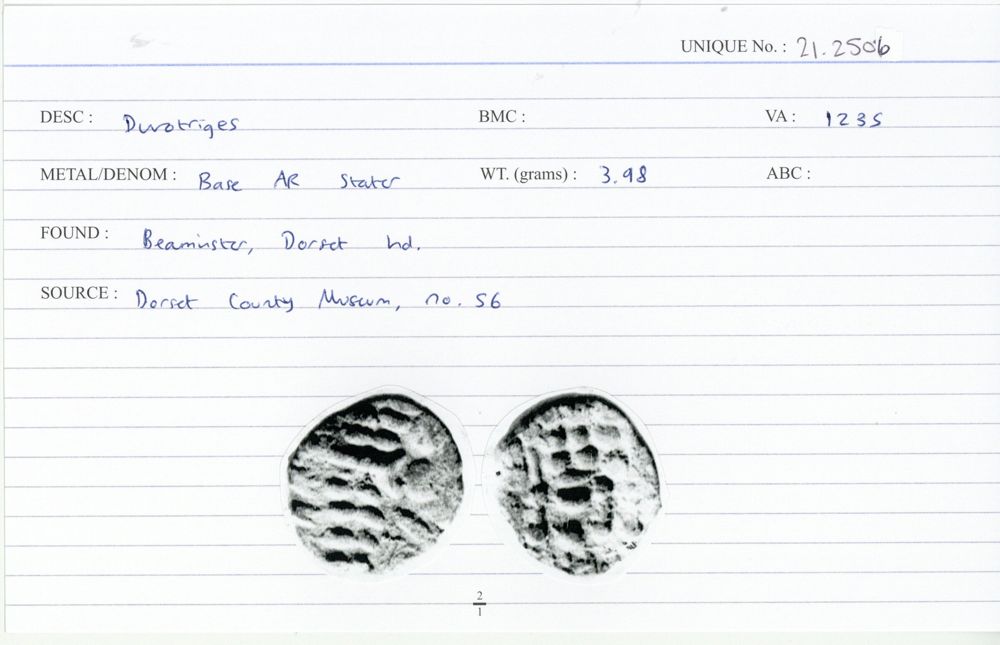 UNIQUE No. : 21.2506
DESC : Durotriges BMC : VA : 1235
METAL/DENOM : Base AR Stater WT. (grams) : 3.98 ABC :
FOUND : Beaminster, Dorset hd.
SOURCE : Dorset County Museum, no. 56
2
1